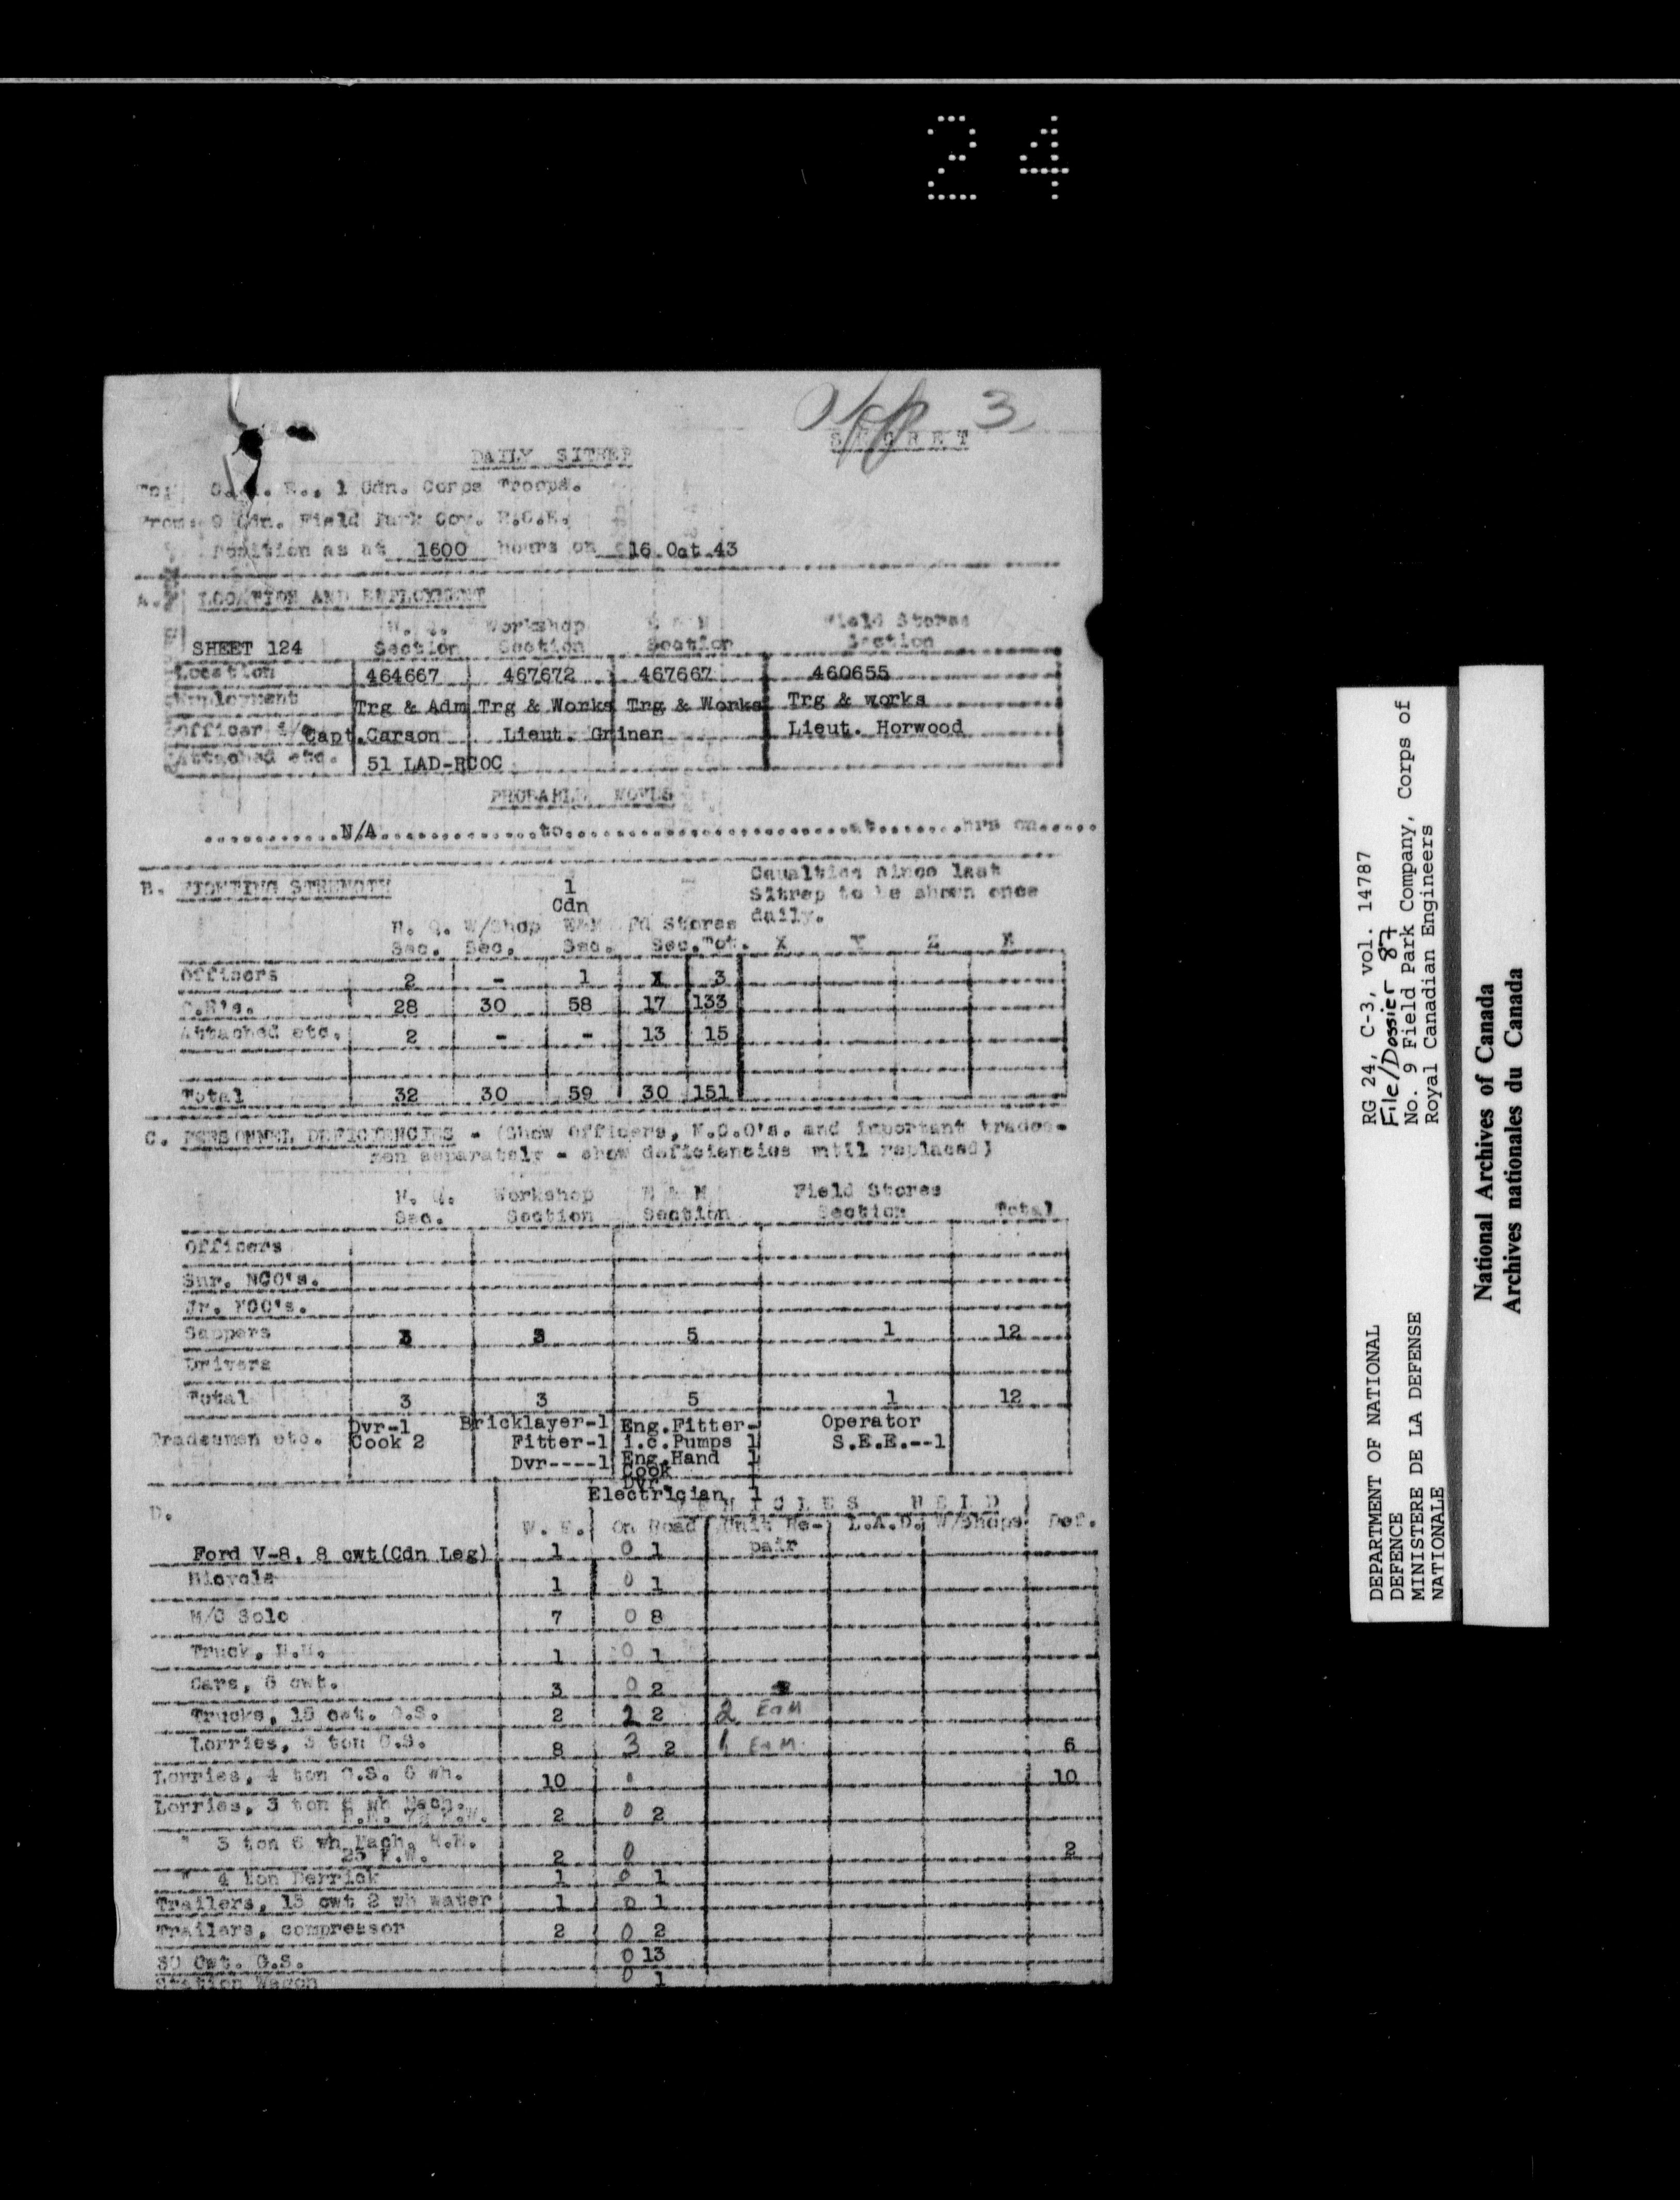 24
App 3
SECRET
DAILY SITREP
To: C.R.E., 1 Cdn. Corps Troops.
From: 9 Cdn. Field Park Coy. R.C.E.
Position as at 1600 hours on 16 Oct 43
A. LOCATION AND EMPLOYMENT
H. Q. Workshop E & M Field Stores
SHEET 124 Section Section Section Section
Location 464667 467672 467667 460655
Employment Trg & Adm Trg & Works Trg & Works Trg & works
Officer i/c Capt.Carson Lieut. Griner Lieut. Horwood
Attached etc. 51 LAD-RCOC
PROBABLE MOVES
............N/A...............to..........................at........hrs on......
B. FIGHTING STRENGTH 1 Cdn
Caualties since last
Sitrep to be shown once
daily.
H. Q. W/Shop E&M Fd Stores
Sec. Sec. Sec. Sec. Tot. X Y Z
Officers 2 - 1 3
O.R's. 28 30 58 17 133
Attached etc. 2 - - 13 15
Total 32 30 59 30 151
C. PERSONNEL DEFICIENCIES - (Show Officers, N.C.O's. and important trades-
men separately - show deficiencies until replaced)
H. Q. Workshop E & M Field Stores
Sec. Section Section Section Total
Officers
Snr. NCO's.
Jr. NCO's.
Sappers 3 3 5 1 12
Drivers
Total 3 3 5 1 12
Tradesmen etc.
Dvr-1
Cook 2
Bricklayer-1
Fitter-1
Dvr----1
Eng.Fitter-
i.c.Pumps 1
Eng.Hand 1
Cook 1
Dvr. 1
Electrician 1
Operator
S.E.E.--1
D. VEHICLES HELD
W. E. On Road Unit Re-pair L.A.D. W/Shops Def.
Ford V-8, 8 cwt(Cdn Leg) 1 0 1
Bicycle 1 0 1
M/C Solo 7 0 8
Truck, H.U. 1 0 1
Cars, 8 cwt. 3 0 2
Trucks, 15 cwt. G.S. 2 2 2 2 E&M
Lorries, 3 ton G.S. 8 3 2 1 E&M 6
Lorries, 4 ton G.S. 6 wh. 10 0 10
Lorries, 3 ton 6 wh Mach. 2 0 2
" 3 ton 6 wh Mach. R.E.
25 K.W. 2 0 2
" 4 ton Derrick 1 0 1
Trailers, 15 cwt 2 wh water 1 0 1
Trailers, compressor 2 0 2
30 Cwt. G.S. 0 13
Station Wagon 0 1
DEPARTMENT OF NATIONAL
DEFENCE
MINISTERE DE LA DEFENSE
NATIONALE
RG 24, C-3, vol. 14787
File/Dossier 87
No. 9 Field Park Company, Corps of
Royal Canadian Engineers
National Archives of Canada
Archives nationales du Canada